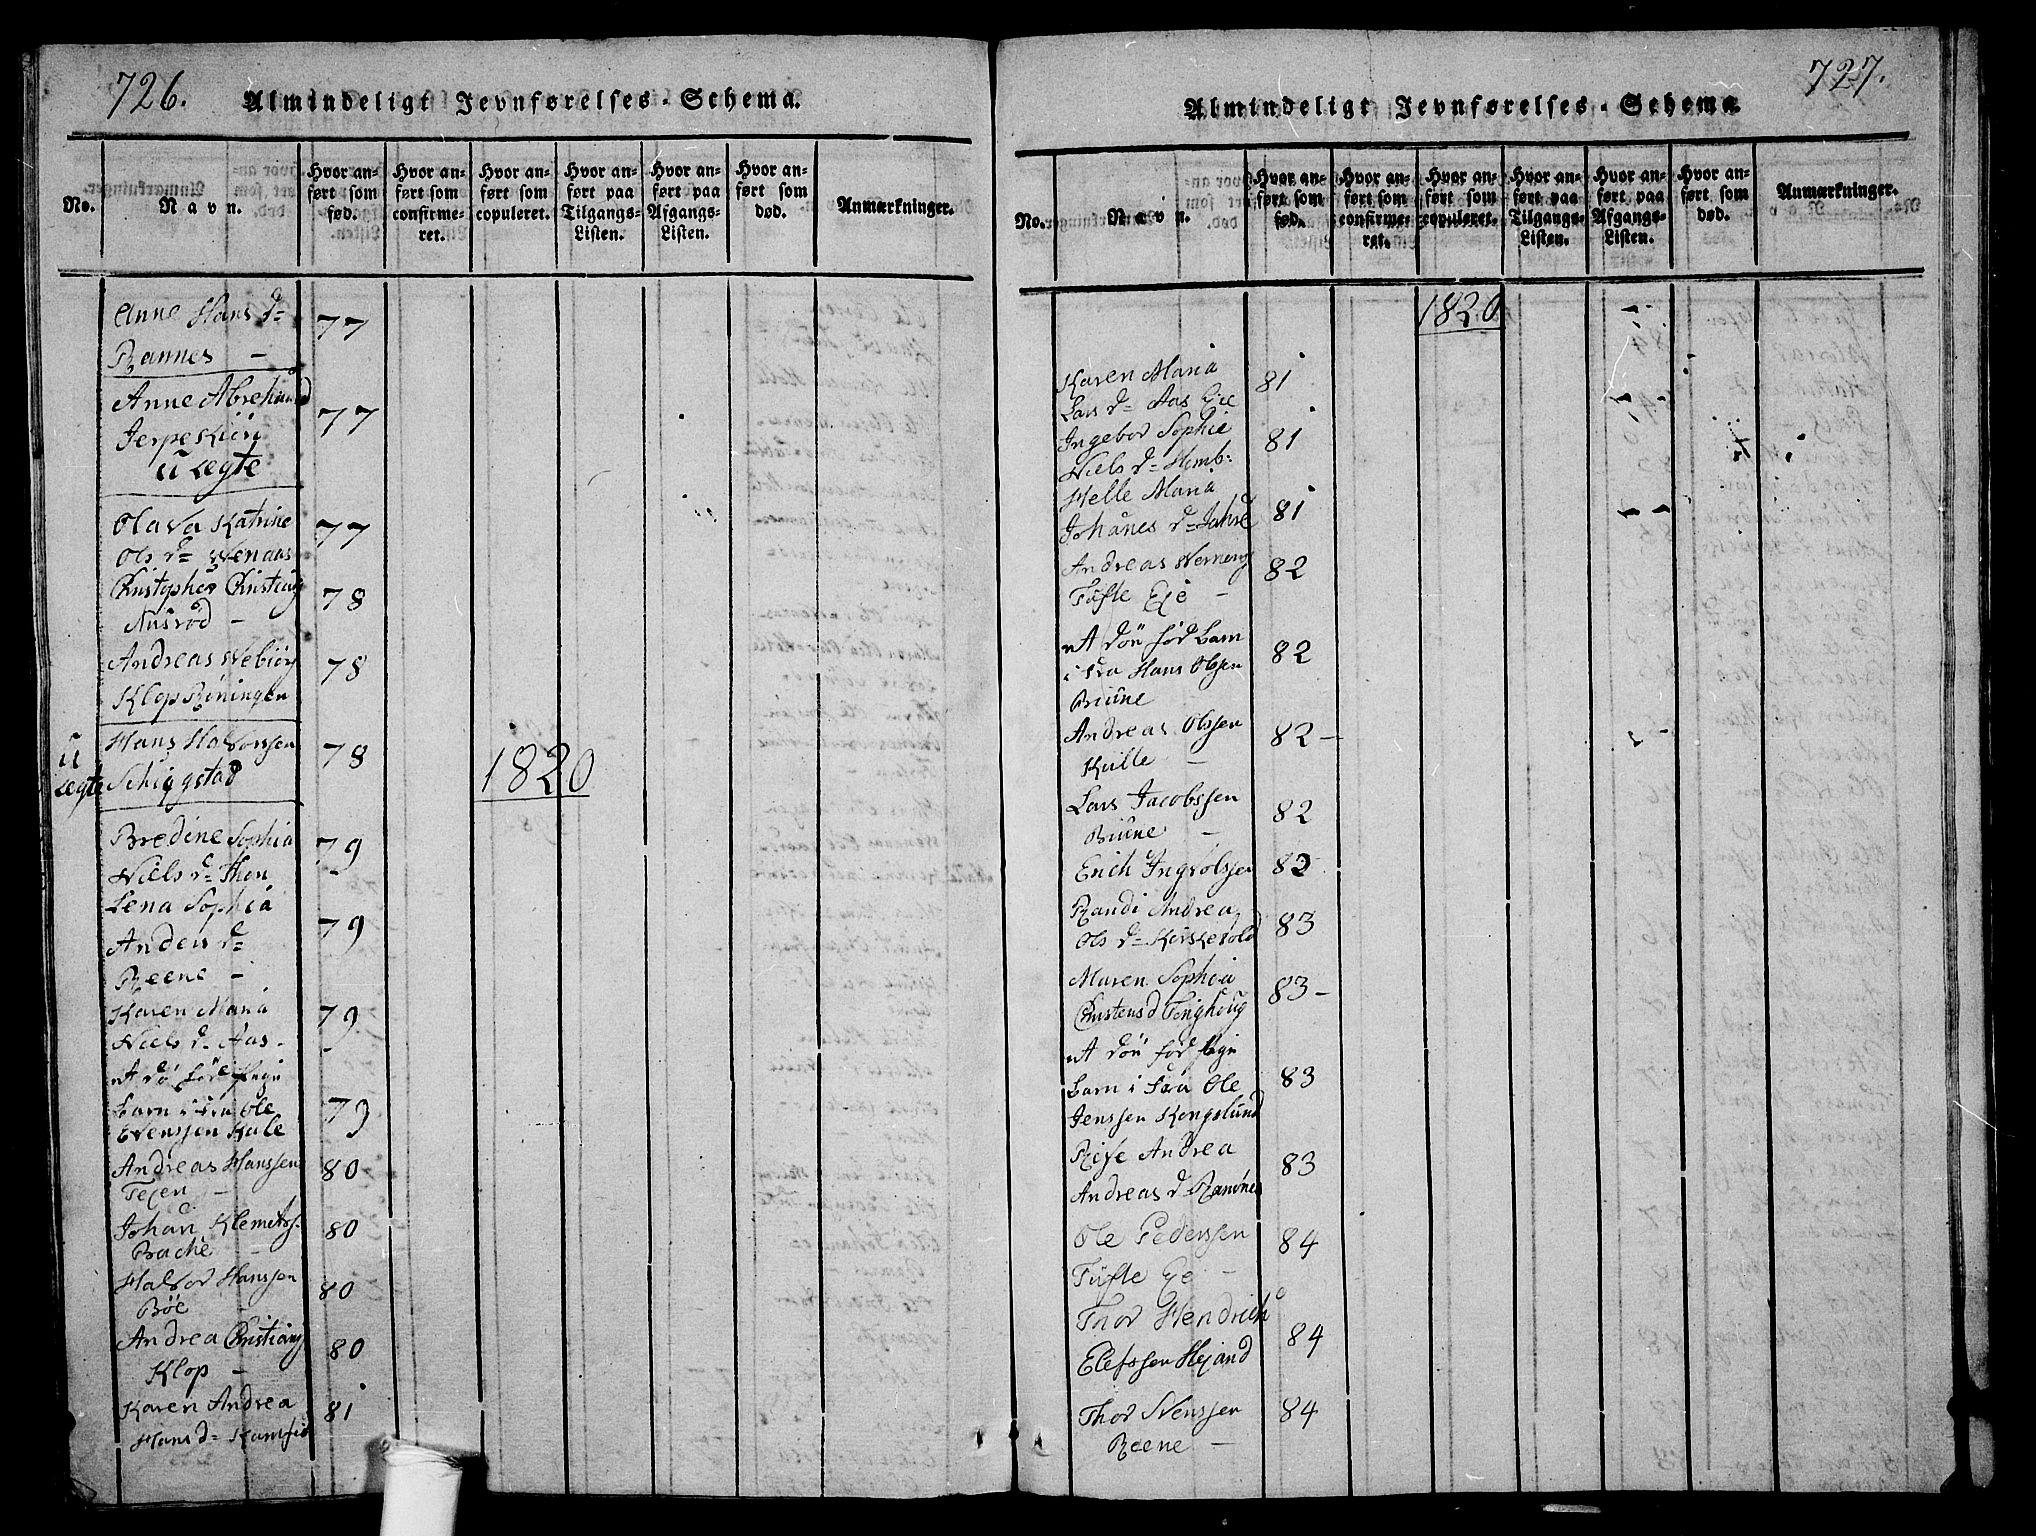 726.
Almindeligt Jevnførelses-Schema.
No.
Navn.
Hvor anført som fød.
Hvor anført som confirmeret.
Hvor anført som copuleret.
Hvor anført paa Tilgangs-Listen.
Hvor anført paa Afgangs-Listen.
Hvor anført som død.
Anmærkninger.
Anne Hans d=
Rannes — 77
Anne Abreham d
Jerpekiön 77
u ægte
Olava Katrine
Ols d= Wenaas 77
Christopher Christians
Nusröd — 78
Andreas Nebiörs
Klop Röningen 78
Hans Halvorssen
u ægte Schiggstad 78
1820
Bredine Sophia
Niels d= Thon 79
Lena Sophia
Anders d=
Reene — 79
Karen Maria
Niels d= Aas. 79
Et dö föd pige
barn i fra Ole
Evenssen Kale 79
Andreas Hanssen
Tejen — 80
Johan Klemets.
Bache — 80
Halvor Hanssen
Böe 80
Andrea Christians
Klop — 80
Karen Andrea
Hans d= Kamfiö 81
727.
Almindeligt Jevnførelses-Schema
No.
Navn.
Hvor anført som fød.
Hvor anført som confirmeret.
Hvor anført som copuleret.
Hvor anført paa Tilgangs-Listen.
Hvor anført paa Afgangs-Listen.
Hvor anført som død.
Anmærkninger.
1820
Karen Maria
Lars d= Aas Eje 81
Ingebor Sophie
Niels d= Himb: 81
Helle Maria
Johanes d= Jahre 81
Andreas Werners
Tufte Eje — 82
Et döu föd barn
i fra Hans Olssen
Bruune 82
Andreas Olssen
Kulle — 82 —
Lars Jacobssen
Bruune — 82
Erich Ingvolssen 82
Randi Andrea
Ols d= Kirkevold 83
Maren Sophia
Christens d Tinghoug 83 —
Et döu föd pige
barn i fra Ole
Jenssen Kongslund 83
Rife Andrea
Andreas d Ramnes 83
Ole Pederssen
Tufte Eje — 84
Thor Hendrich
Elefssen Hejand 84
Thor Svenssen
Reene — 84